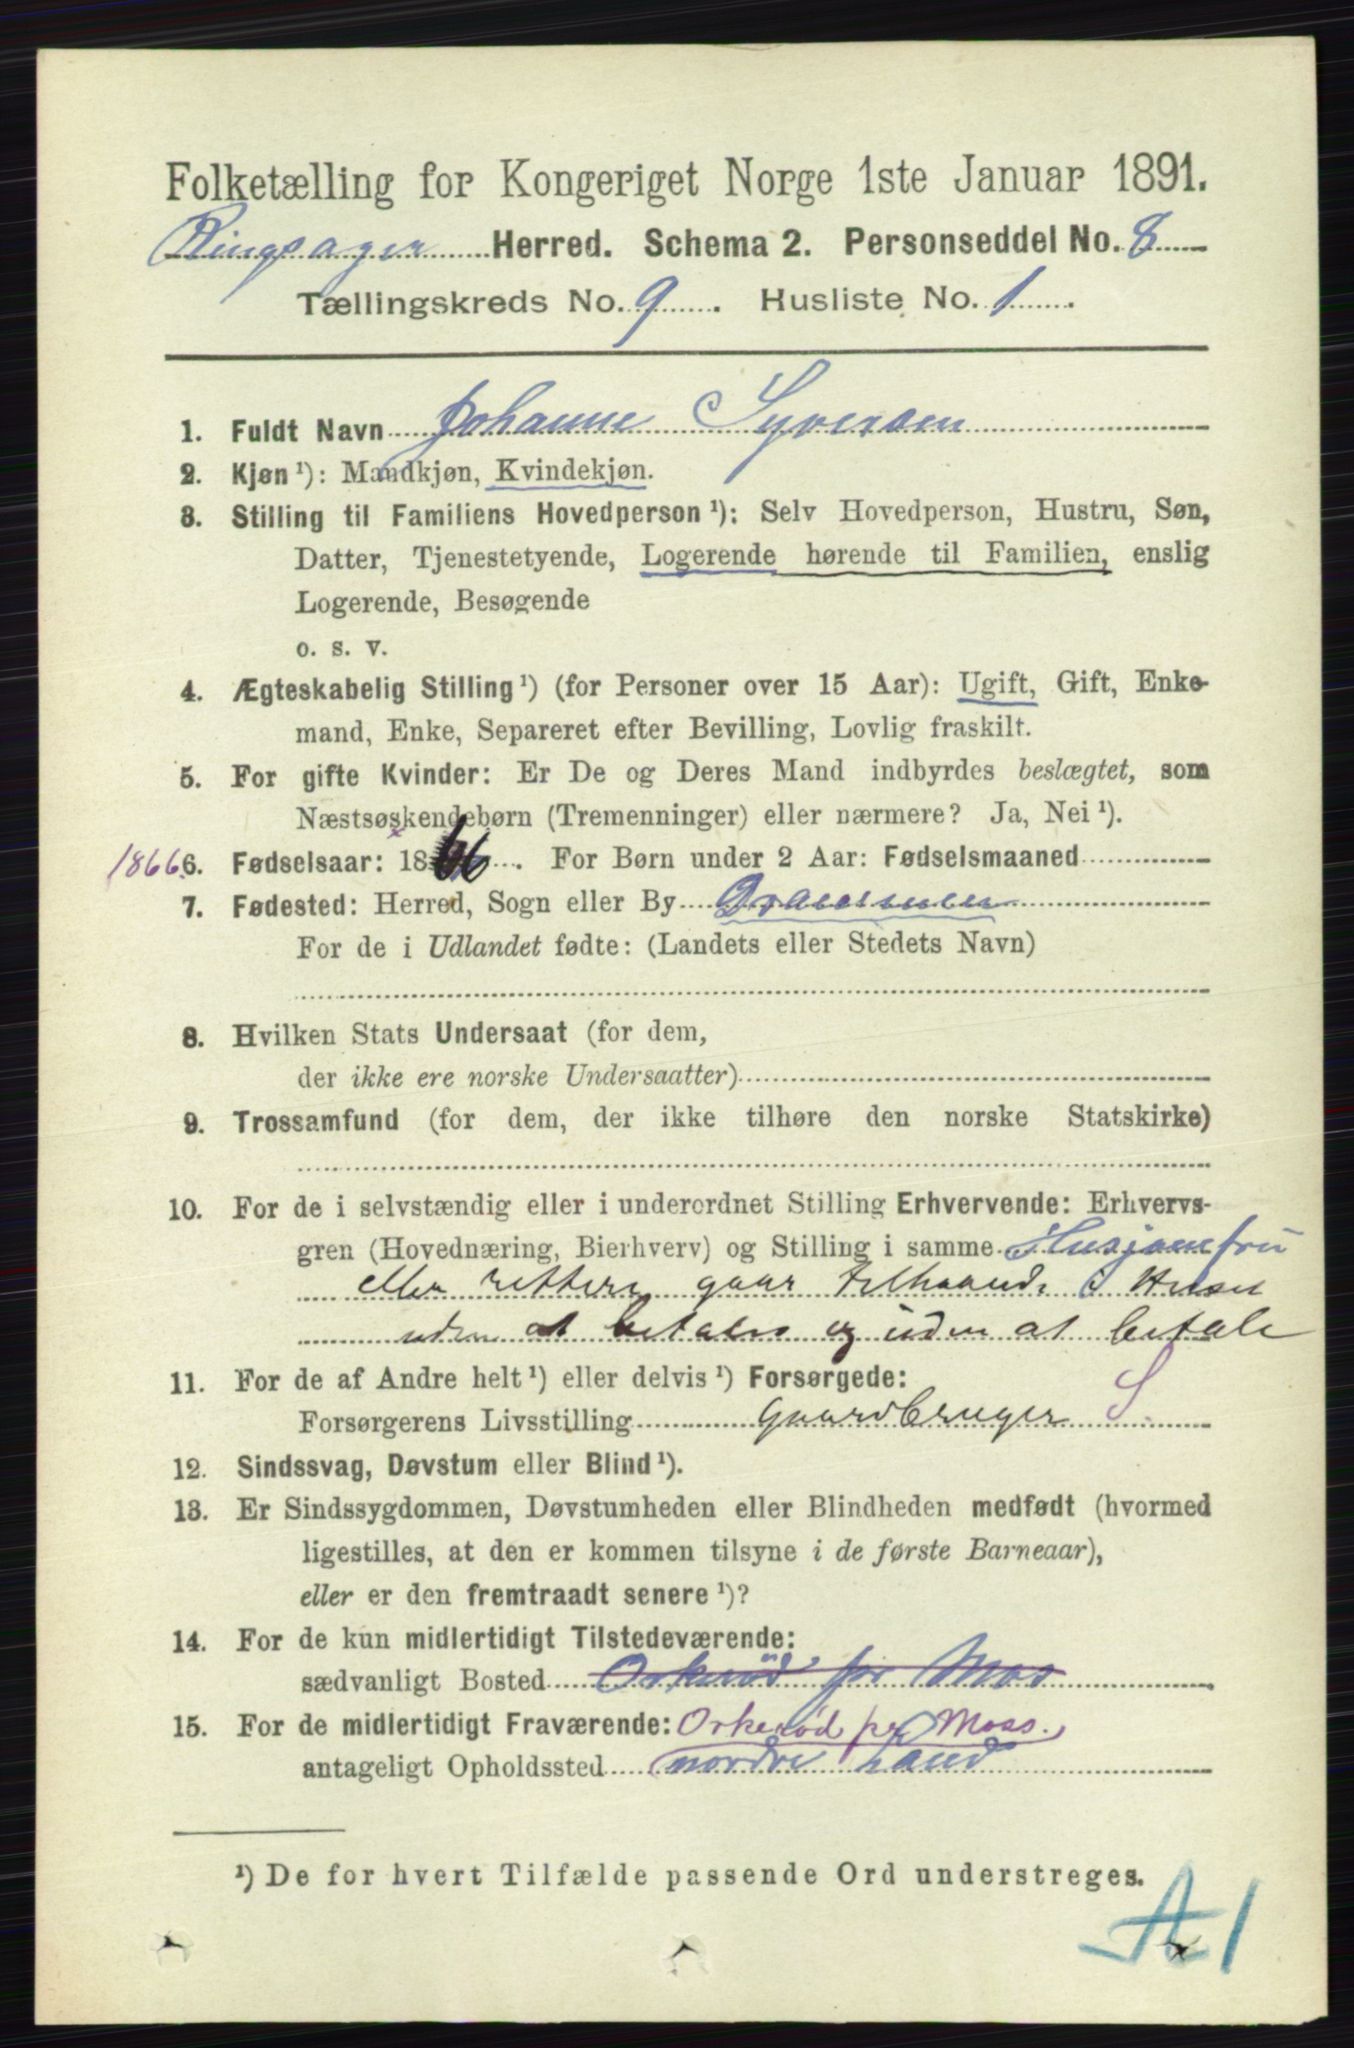 Folketælling for Kongeriget Norge 1ste Januar 1891.
Ringsager Herred. Schema 2. Personseddel No. 8
Tællingskreds No. 9. Husliste No. 1.
1. Fuldt Navn Johanne Syversen
2. Kjøn ¹): Mandkjøn, Kvindekjøn.
3. Stilling til Familiens Hovedperson ¹): Selv Hovedperson, Hustru, Søn,
Datter, Tjenestetyende, Logerende hørende til Familien, enslig
Logerende, Besøgende
o. s. v.
4. Ægteskabelig Stilling ¹) (for Personer over 15 Aar): Ugift, Gift, Enke-
mand, Enke, Separeret efter Bevilling, Lovlig fraskilt.
5. For gifte Kvinder: Er De og Deres Mand indbyrdes beslægtet, som
Næstsøskendebørn (Tremenninger) eller nærmere? Ja, Nei ¹).
1866. 6. Fødselsaar: 1866. For Børn under 2 Aar: Fødselsmaaned
7. Fødested: Herred, Sogn eller By Drammen
For de i Udlandet fødte: (Landets eller Stedets Navn)
8. Hvilken Stats Undersaat (for dem,
der ikke ere norske Undersaatter)
9. Trossamfund (for dem, der ikke tilhøre den norske Statskirke)
10. For de i selvstændig eller i underordnet Stilling Erhvervende: Erhvervs-
gren (Hovednæring, Bierhverv) og Stilling i samme Husjomfru
eller rettere gaar tilhaande i Huset
uden at betales og uden at betale
11. For de af Andre helt ¹) eller delvis ¹) Forsørgede: S.
Forsørgerens Livsstilling Gaardbruger
12. Sindssvag, Døvstum eller Blind ¹).
13. Er Sindssygdommen, Døvstumheden eller Blindheden medfødt (hvormed
ligestilles, at den er kommen tilsyne i de første Barneaar),
eller er den fremtraadt senere ¹)?
14. For de kun midlertidigt Tilstedeværende:
sædvanligt Bosted Orkerød pr Mos
15. For de midlertidigt Fraværende: Orkerød pr Moss.
antageligt Opholdssted nordre Land
¹) De for hvert Tilfælde passende Ord understreges.
A1